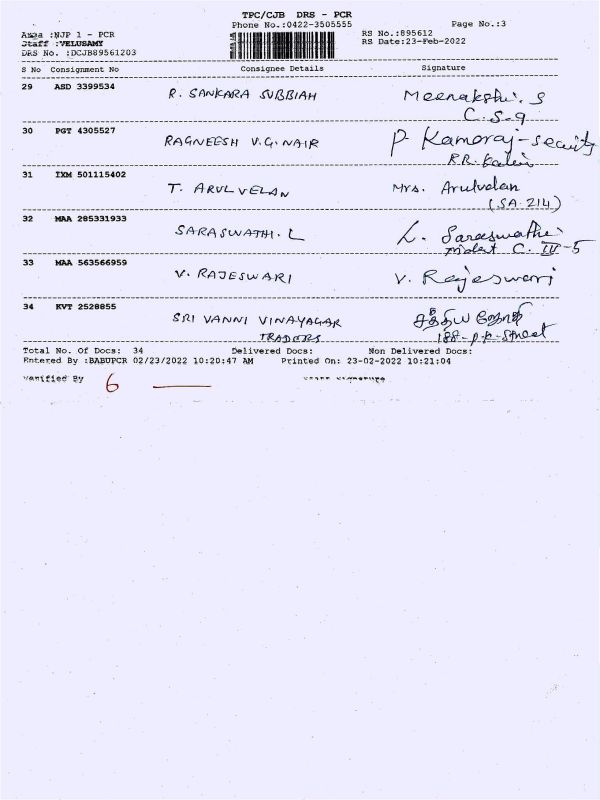 TPC/CJB DRS - PCR
Phone No.:0422-3505555
Page No.:3
Area :NJP 1 - PCR
RS No.:895612
Staff :VELUSAMY
RS Date:23-Feb-2022
DRS No. :DCJB89561203
S No Consignment No Consignee Details Signature
29 ASD 3399534 R. SANKARA SUBBIAH Meenakshi. S
C.S-9
30 PGT 4305527 RAGNEESH V.G. NAIR P Kamaraj-
R.R.
31 IXM 501115402 T. ARULVELAN Mrs. Arulvelan
(SA-214)
32 MAA 285331933 SARASWATHI. L L. Saraswathi
C. IV-5
33 MAA 563566959 V. RAJESWARI V. Rajeswari
34 KVT 2528855 SRI VANNI VINAYAGAR சத்திய ஜோதி
TRADERS 188-P.K-Street
Total No. Of Docs: 34 Delivered Docs: Non Delivered Docs:
Entered By :BABUPCR 02/23/2022 10:20:47 AM Printed On: 23-02-2022 10:21:04
Varified By 6